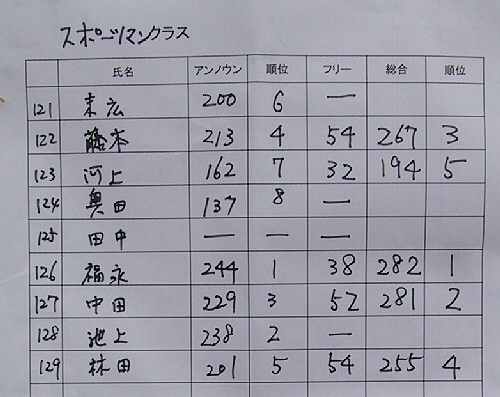 スポーツマンクラス
氏名 アンノウン 順位 フリー 総合 順位
121 末広 200 6 —
122 藤本 213 4 54 267 3
123 河上 162 7 32 194 5
124 奥田 137 8 —
125 田中 — — —
126 福永 244 1 38 282 1
127 中田 229 3 52 281 2
128 池上 238 2 —
129 林田 201 5 54 255 4